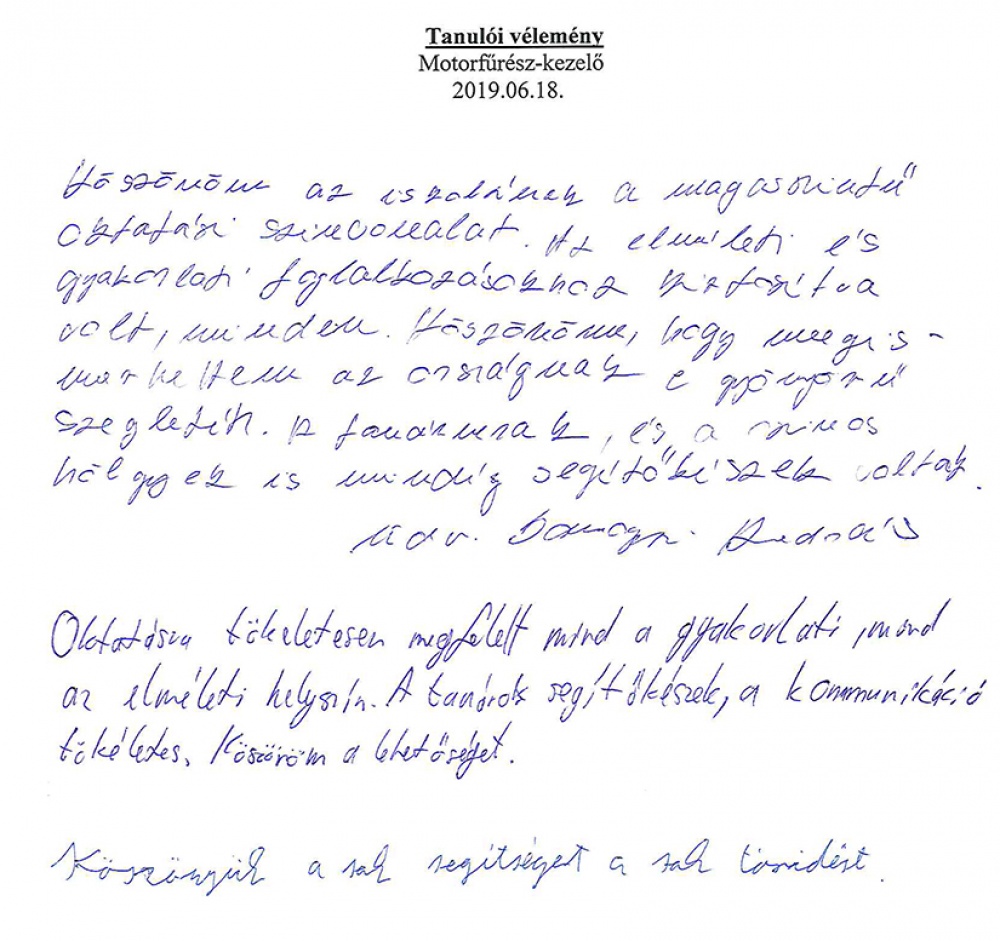 Tanulói vélemény
Motorfűrész-kezelő
2019.06.18.
Köszönöm az iskolának a magasszintű
oktatási színvonalat. Az elméleti és
gyakorlati foglalkozásokhoz biztosítva
volt, minden. Köszönöm, hogy megis-
merhettem az országnak e gyönyörű
szegletét. A tanáraknak, és a csinos
hölgyek is mindig segítőkészek voltak.
Üdv. András
Oktatásra tökéletesen megfelelt mind a gyakorlati, mind
az elméleti helyszín. A tanárok segítőkészek, a kommunikáció
tökéletes. Köszönöm a lehetőséget.
Köszönjük a sok segítséget a sok törődést.